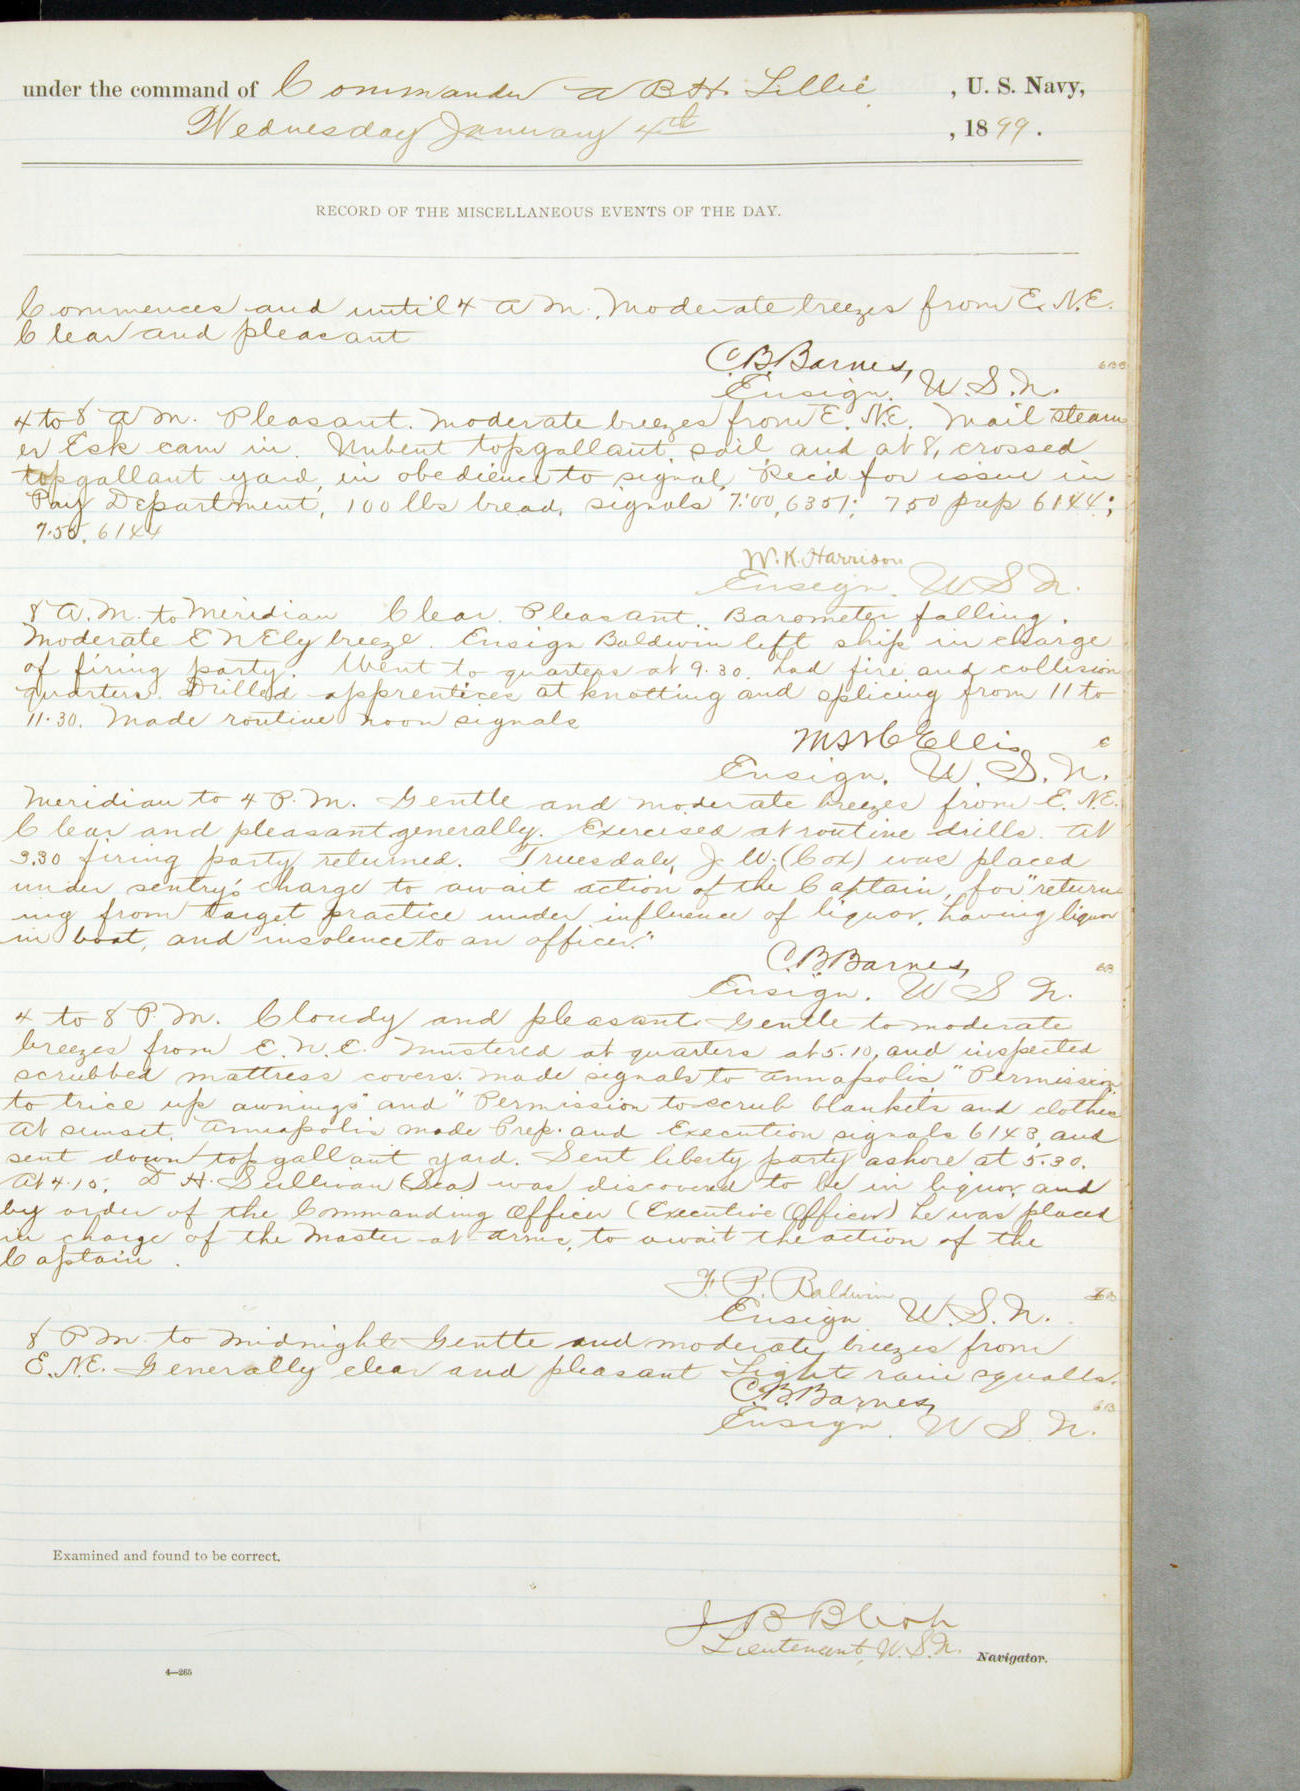 under the command of Commander A B H. Lillie , U. S. Navy,
Wednesday January 4th , 1899.
RECORD OF THE MISCELLANEOUS EVENTS OF THE DAY.
Commences and until 4 A M. Moderate breezes from E. N.E.
Clear and pleasant
C.B. Barnes,
Ensign. U.S.N.
4 to 8 A M. Pleasant. Moderate breezes from E. N.E. Mail steam
er Esk cam in. Unbent topgallant sail and at 8, crossed
topgallant yard, in obedience to signal. Rec'd for issue in
Pay Department, 100 lbs bread. signals 7:00, 6351; 750 prep 6144;
7.50, 6144
W.K. Harrison
Ensign. U S N.
8 A.M. to Meridian Clear. Pleasant. Barometer falling.
Moderate E N Ely breeze. Ensign Baldwin left ship in charge
of firing party. Went to quarters at 9.30. had fire and collision
quarters. Drilled apprentices at knotting and splicing from 11 to
11.30. Made routine noon signals
Ellis
Ensign. U. S. N.
Meridian to 4 P. M. Gentle and moderate breezes from E. N.E.
Clear and pleasant generally. Exercised at routine drills. At
3.30 firing party returned. Truesdale, J. W. (Cox) was placed
under sentry's charge to await action of the Captain, for "return
ing from target practice under influence of liquor, having liquor
in boat, and insolence to an officer."
C.B. Barnes,
Ensign. U S N.
4 to 8 P. M. Cloudy and pleasant. Gentle to moderate
breezes from E.N.E. Mustered at quarters at 5.10, and inspected
scrubbed mattress covers. Made signals to Annapolis "Permission
to trice up awnings" and "Permission to scrub blankets and clothes"
At sunset, Annapolis made Prep. and Execution signals 6143, and
sent down top gallant yard. Sent liberty party ashore at 5.30.
At 4.15, D H. Sullivan (Sea) was discovered to be in liquor and
by order of the Commanding Officer (Executive Officer) he was placed
in charge of the Master-at-arms, to await the action of the
Captain.
F. P. Baldwin
Ensign U.S.N.
8 P M. to Midnight Gentle and moderate breezes from
E. N.E. Generally clear and pleasant Light rain squalls.
C.B. Barnes,
Ensign. U S N.
Examined and found to be correct.
J B Blish
Lieutenant, U.S.N. Navigator.
4—265